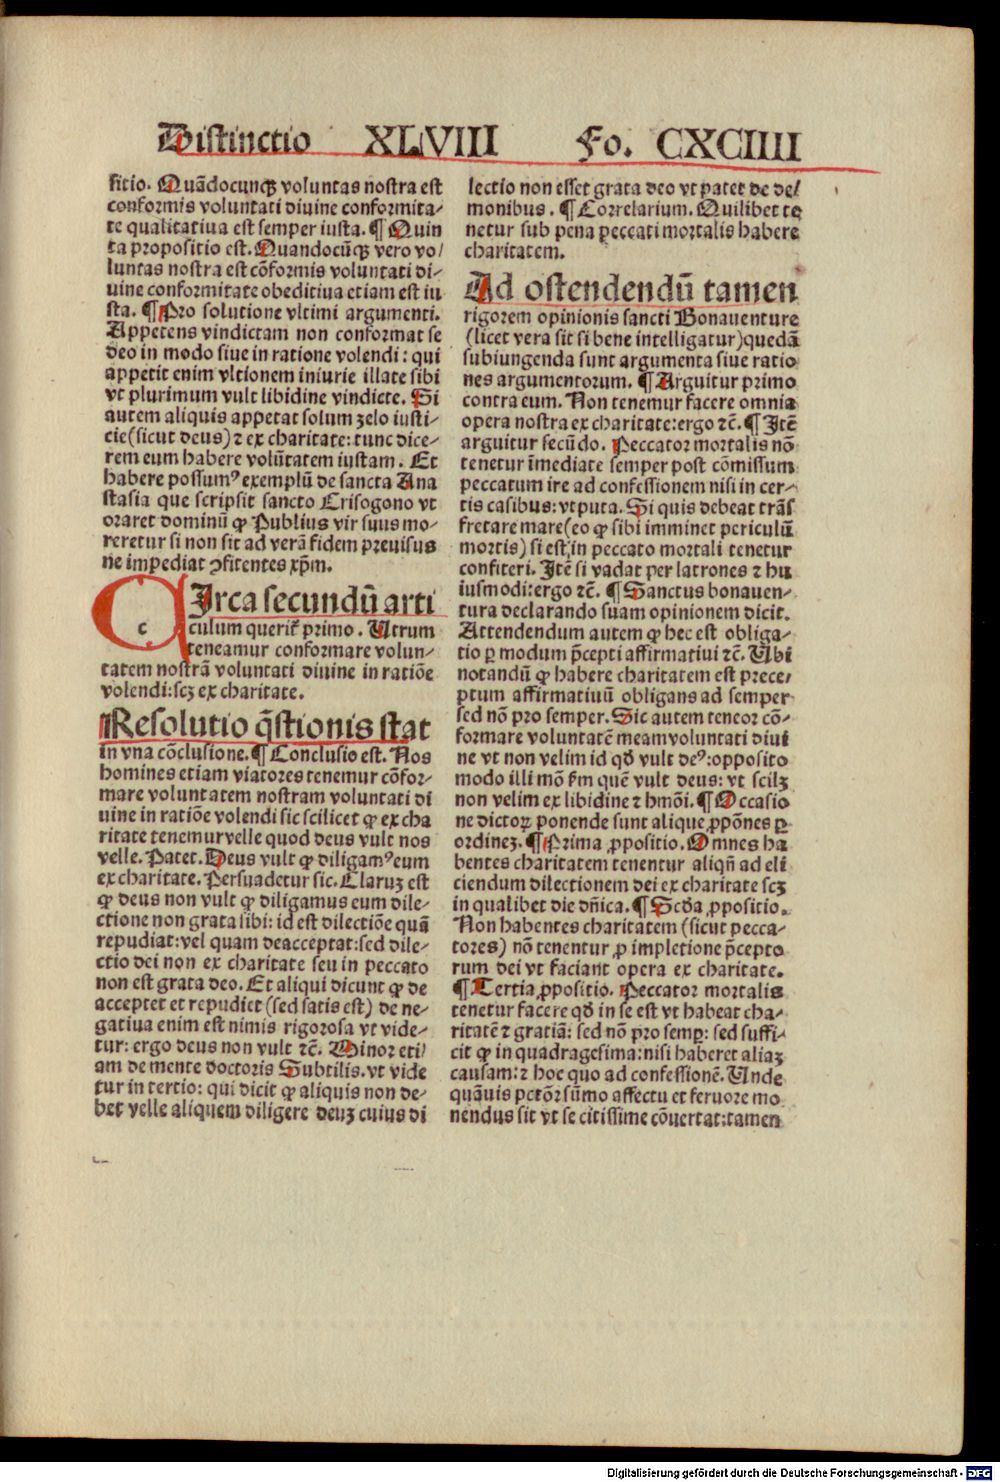 Distinctio XLVIII Fo. CXCIIII
sitio. Quãdocunqꝫ voluntas nostra est
conformis voluntati diuine conformita-
te qualitatiua est semper iusta. ¶ Quin
ta propositio est. Quandocũqꝫ vero vo/
luntas nostra est cõformis voluntati di-
uine conformitate obeditiua etiam est iu
sta. ¶ Pro solutione vltimi argumenti.
Appetens vindictam non conformat se
deo in modo siue in ratione volendi: qui
appetit enim vltionem iniurie illate sibi
vt plurimum vult libidine vindicte. Si
autem aliquis appetat solum zelo iusti-
cie(sicut deus)⁊ ex charitate: tunc dice-
rem eum habere volũtatem iustam. Et
habere possumꝰ exemplũ de sancta Ana
stasia que scripsit sancto Crisogono vt
oraret dominũ ꝙ Publius vir suus mo-
reretur si non sit ad verã fidem preuisus
ne impediat ꝯfitentes xp̃m.
CIrca secundũ arti
culum querit᷑ primo. Utrum
teneamur conformare volun-
tatem nostrã voluntati diuine in ratiõe
volendi:scꝫ ex charitate.
Resolutio q̃stionis stat
in vna cõclusione. ¶ Conclusio est. Nos
homines etiam viatores tenemur cõfor-
mare voluntatem nostram voluntati di
uine in ratiõe volendi sic scilicet ꝙ ex cha
ritate tenemur velle quod deus vult nos
velle. Patet. Deus vult ꝙ diligamꝰ eum
ex charitate. Persuadetur sic. Claruꝫ est
ꝙ deus non vult ꝙ diligamus eum dile-
ctione non grata sibi: id est dilectiõe quã
repudiat:vel quam deacceptat:sed dile-
ctio dei non ex charitate seu in peccato
non est grata deo. Et aliqui dicunt ꝙ de
acceptet et repudiet (sed satis est) de ne-
gatiua enim est nimis rigorosa vt vide-
tur: ergo deus non vult ⁊c̃. Minor eti/
am de mente doctoris Subtilis. vt vide
tur in tertio: qui dicit ꝙ aliquis non de-
bet velle aliquem diligere deuꝫ cuius di
lectio non esset grata deo vt patet de de/
monibus. ¶ Correlarium. Quilibet te
netur sub pena peccati mortalis habere
charitatem.
Ad ostendendũ tamen
rigorem opinionis sancti Bonauenture
(licet vera sit si bene intelligatur)quedã
subiungenda sunt argumenta siue ratio
nes argumentorum. ¶ Arguitur primo
contra eum. Non tenemur facere omnia
opera nostra ex charitate:ergo ⁊c̃. ¶ Itẽ
arguitur secũdo. Peccator mortalis nõ
tenetur ĩmediate semper post cõmissum
peccatum ire ad confessionem nisi in cer-
tis casibus: vt puta. Si quis debeat trãs
fretare mare(eo ꝙ sibi imminet periculũ
mortis) si est in peccato mortali tenetur
confiteri. Itẽ si vadat per latrones ⁊ hu
iusmodi:ergo ⁊c̃. ¶ Sanctus bonauen-
tura declarando suam opinionem dicit.
Attendendum autem ꝙ hec est obliga-
tio ꝑ modum p̃cepti affirmatiui ⁊c̃. Ubi
notandũ ꝙ habere charitatem est prece-
ptum affirmatiuũ obligans ad semper
sed nõ pro semper. Sic autem teneor cõ-
formare voluntatẽ meam voluntati diui
ne vt non velim id qđ vult deꝰ:opposito
modo illi mõ s̃m quẽ vult deus: vt scilꝫ
non velim ex libidine ⁊ hmõi. ¶ Occasio
ne dictoꝝ ponende sunt alique ꝓpõnes ꝑ
ordineꝫ. ¶ Prima ꝓpositio. Omnes ha
bentes charitatem tenentur aliqñ ad eli
ciendum dilectionem dei ex charitate scꝫ
in qualibet die dñica. ¶ Scđa ꝓpositio.
Non habentes charitatem (sicut pecca-
tores) nõ tenentur ꝓ impletione p̃cepto
rum dei vt faciant opera ex charitate.
¶ Tertia ꝓpositio. Peccator mortalis
tenetur facere qđ in se est vt habeat cha-
ritatẽ ⁊ gratiã: sed nõ pro semꝑ: sed suffi-
cit ꝙ in quadragesima:nisi haberet aliaꝫ
causam:⁊ hoc quo ad confessionẽ. Unde
quãuis pctõr sũmo affectu et feruore mo
nendus sit vt se citissime cõuertat:tamen
Digitalisierung gefördert durch die Deutsche Forschungsgemeinschaft - DFG